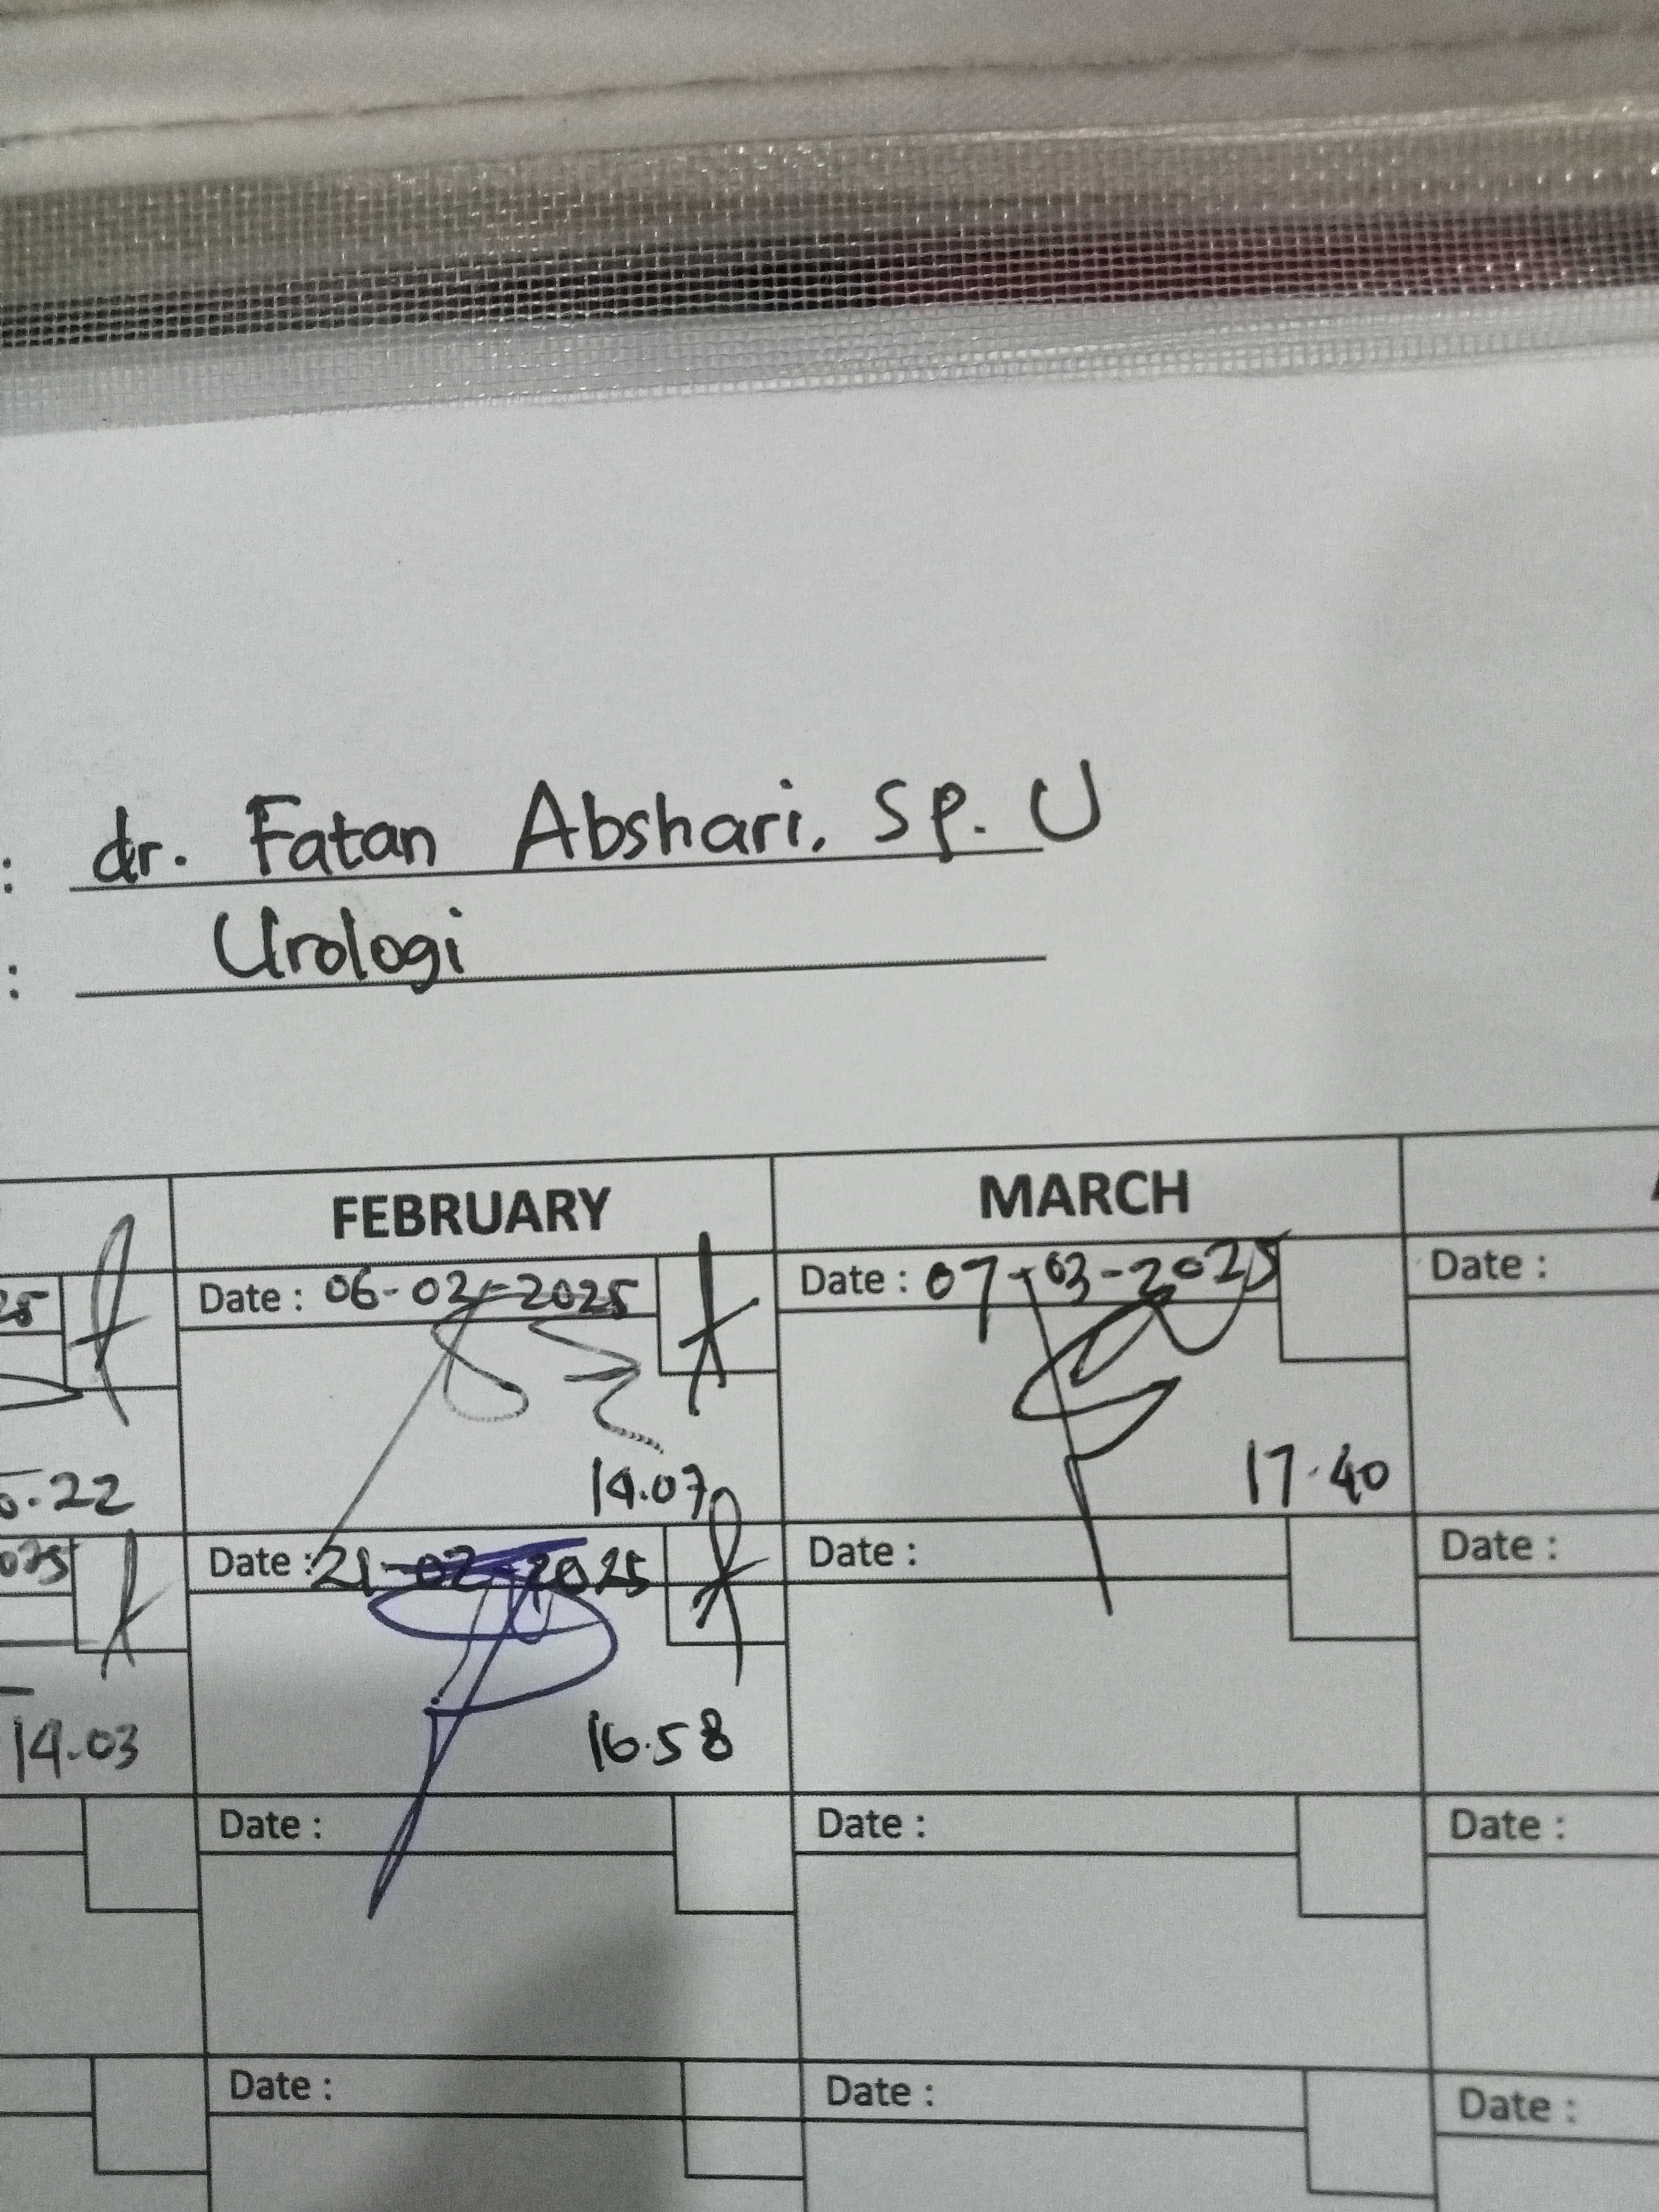 : dr. Fatan Abshari, Sp. U
: Urologi
FEBRUARY MARCH
25 Date : 06-02-2025 Date : 07-03-2025 Date :
.22 14.07 17.40
Date : 21-02-2025 Date : Date :
14.03 16.58
Date : Date : Date :
Date : Date : Date :